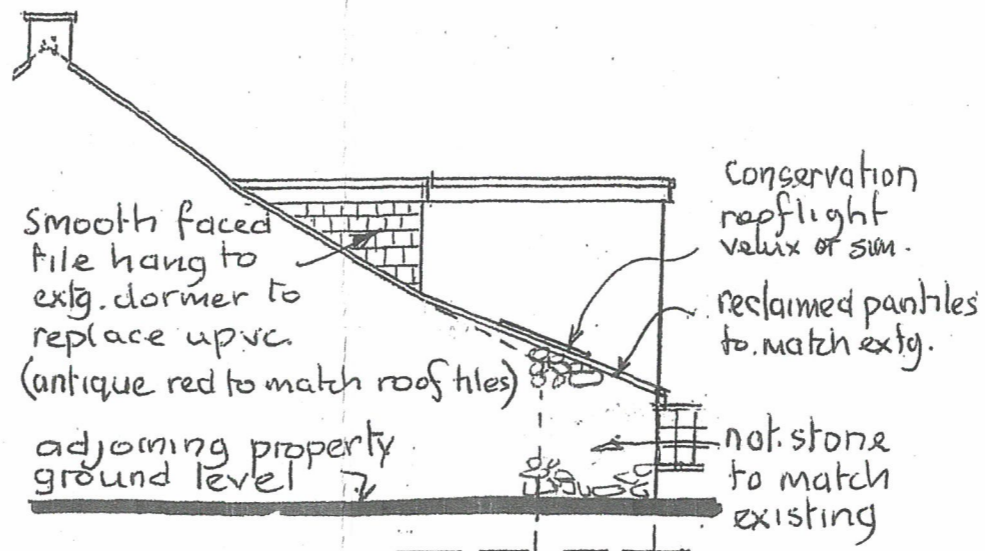 Smooth faced
tile hang to
extg. dormer to
replace upvc.
(antique red to match roof tiles)
adjoining property
ground level
conservation
rooflight
velux or sim.
reclaimed pantiles
to match extg.
nat. stone
to match
existing